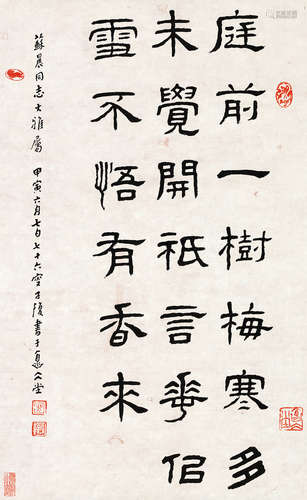 庭前一樹梅寒多
未覺開祇言華佀
雪不悟有香來
蘇晨同志大雅屬 甲寅六月七日七十六叟子復書于堂